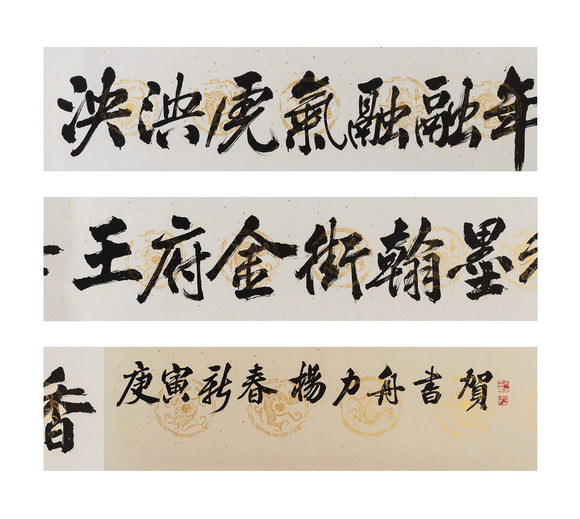 泱泱虎氣融融年
王府金街翰墨香
庚寅新春楊力舟書賀